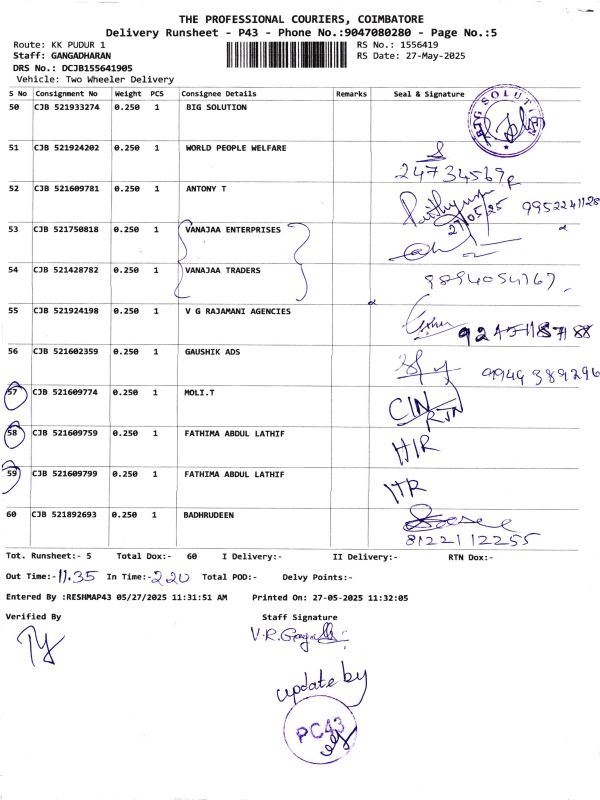 THE PROFESSIONAL COURIERS, COIMBATORE
Delivery Runsheet - P43 - Phone No.:9047080280 - Page No.:5
Route: KK PUDUR 1
Staff: GANGADHARAN
DRS No.: DCJB155641905
Vehicle: Two Wheeler Delivery
RS No.: 1556419
RS Date: 27-May-2025
S No Consignment No Weight PCS Consignee Details Remarks Seal & Signature
50 CJB 521933274 0.250 1 BIG SOLUTION
BIG SOLUTION
51 CJB 521924202 0.250 1 WORLD PEOPLE WELFARE
52 CJB 521609781 0.250 1 ANTONY T
27/05/25
53 CJB 521750818 0.250 1 VANAJAA ENTERPRISES
54 CJB 521428782 0.250 1 VANAJAA TRADERS 9894054767
55 CJB 521924198 0.250 1 V G RAJAMANI AGENCIES
56 CJB 521602359 0.250 1 GAUSHIK ADS 9949389296
57 CJB 521609774 0.250 1 MOLI.T CIN RTN
58 CJB 521609759 0.250 1 FATHIMA ABDUL LATHIF
59 CJB 521609799 0.250 1 FATHIMA ABDUL LATHIF
60 CJB 521892693 0.250 1 BADHRUDEEN 8122112255
Tot. Runsheet:- 5 Total Dox:- 60 I Delivery:- II Delivery:- RTN Dox:-
Out Time:- 11.35 In Time:- 2.20 Total POD:- Delvy Points:-
Entered By :RESHMAP43 05/27/2025 11:31:51 AM Printed On: 27-05-2025 11:32:05
Verified By Staff Signature
update by
PC43